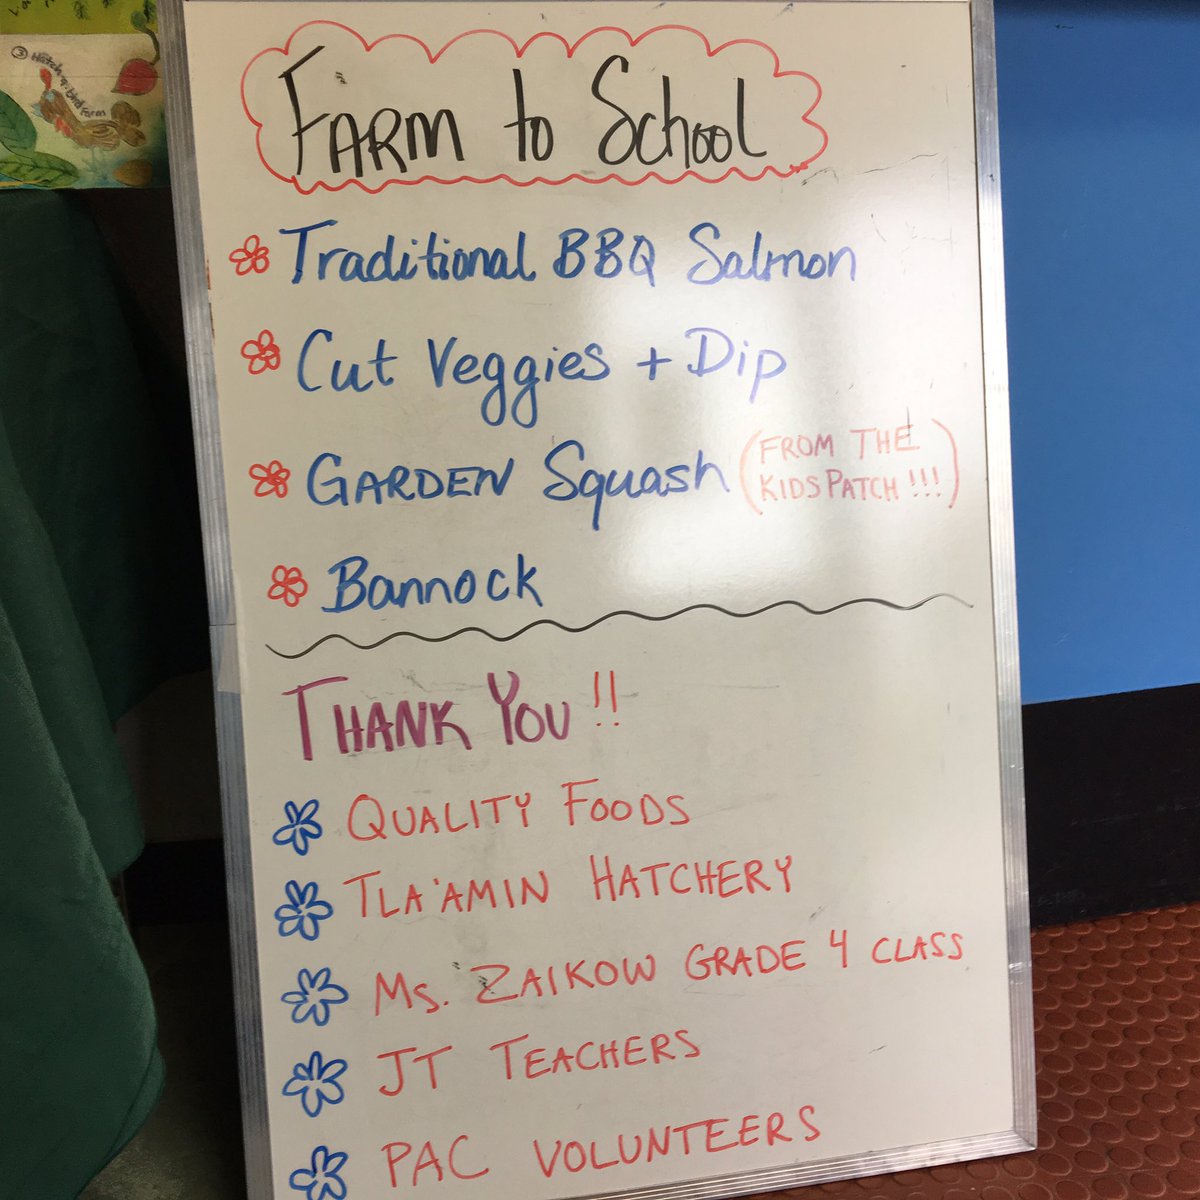 ③ Hatch-a-bird Farm
FARM to School
Traditional BBQ Salmon
Cut Veggies + Dip
GARDEN Squash (FROM THE
KIDS PATCH!!!)
Bannock
THANK YOU!!
QUALITY FOODS
TLA'AMIN HATCHERY
Ms. ZAIKOW GRADE 4 CLASS
JT TEACHERS
PAC VOLUNTEERS